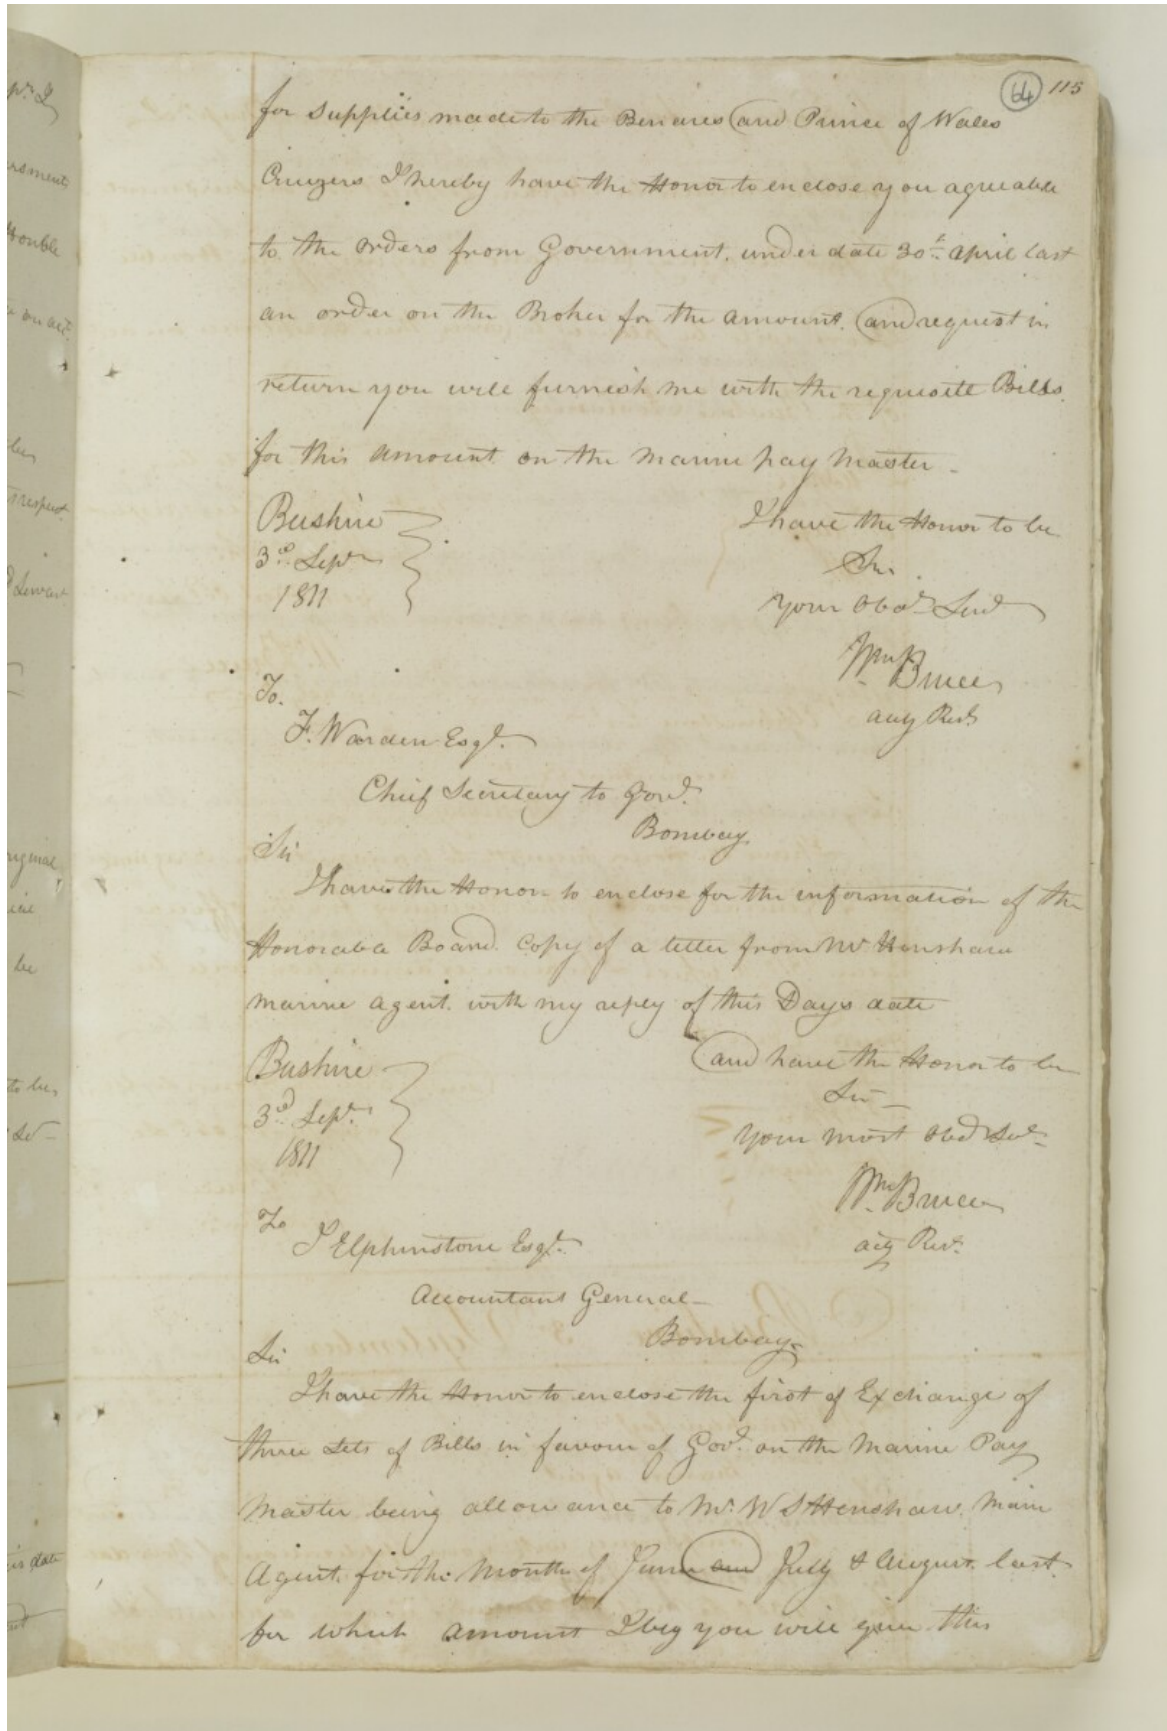 64 115
for supplies made to the Benares and Prince of Wales
Cruizers I hereby have the Honor to enclose you agreable
to the orders from Government. under date 30th. April last
an order on the Broker for the amount. and request in
return you will furnish me with the requisite Bills.
for this amount on the Marine pay Master -
Bushire
3d. Sepr
1811
I have the Honor to be
Sir.
your Obdt Servt
Wm. Bruce
actg Rest
To.
F. Warden Esqr.
Chief Secretary to Govt.
Bombay
Sir
I have the Honor to enclose for the information of the
Honorable Board. Copy of a letter from Mr Henshaw
Marine Agent. with my reply of this Days date
and have the Honor to be
Bushire
3d. Sepr.
1811
Sir -
your most Obdt Svt -
Wm. Bruce
actg Rest.
To
J Elphinstone Esqr.
Accountant General -
Bombay
Sir
I have the Honor to enclose the first of Exchange of
three sets of Bills in favour of Govt. on the Marine Pay
Master being allowance to Mr. W S Henshaw. Marin
Agent. for the Month of June and July & August. last.
for which amount I beg you will give this